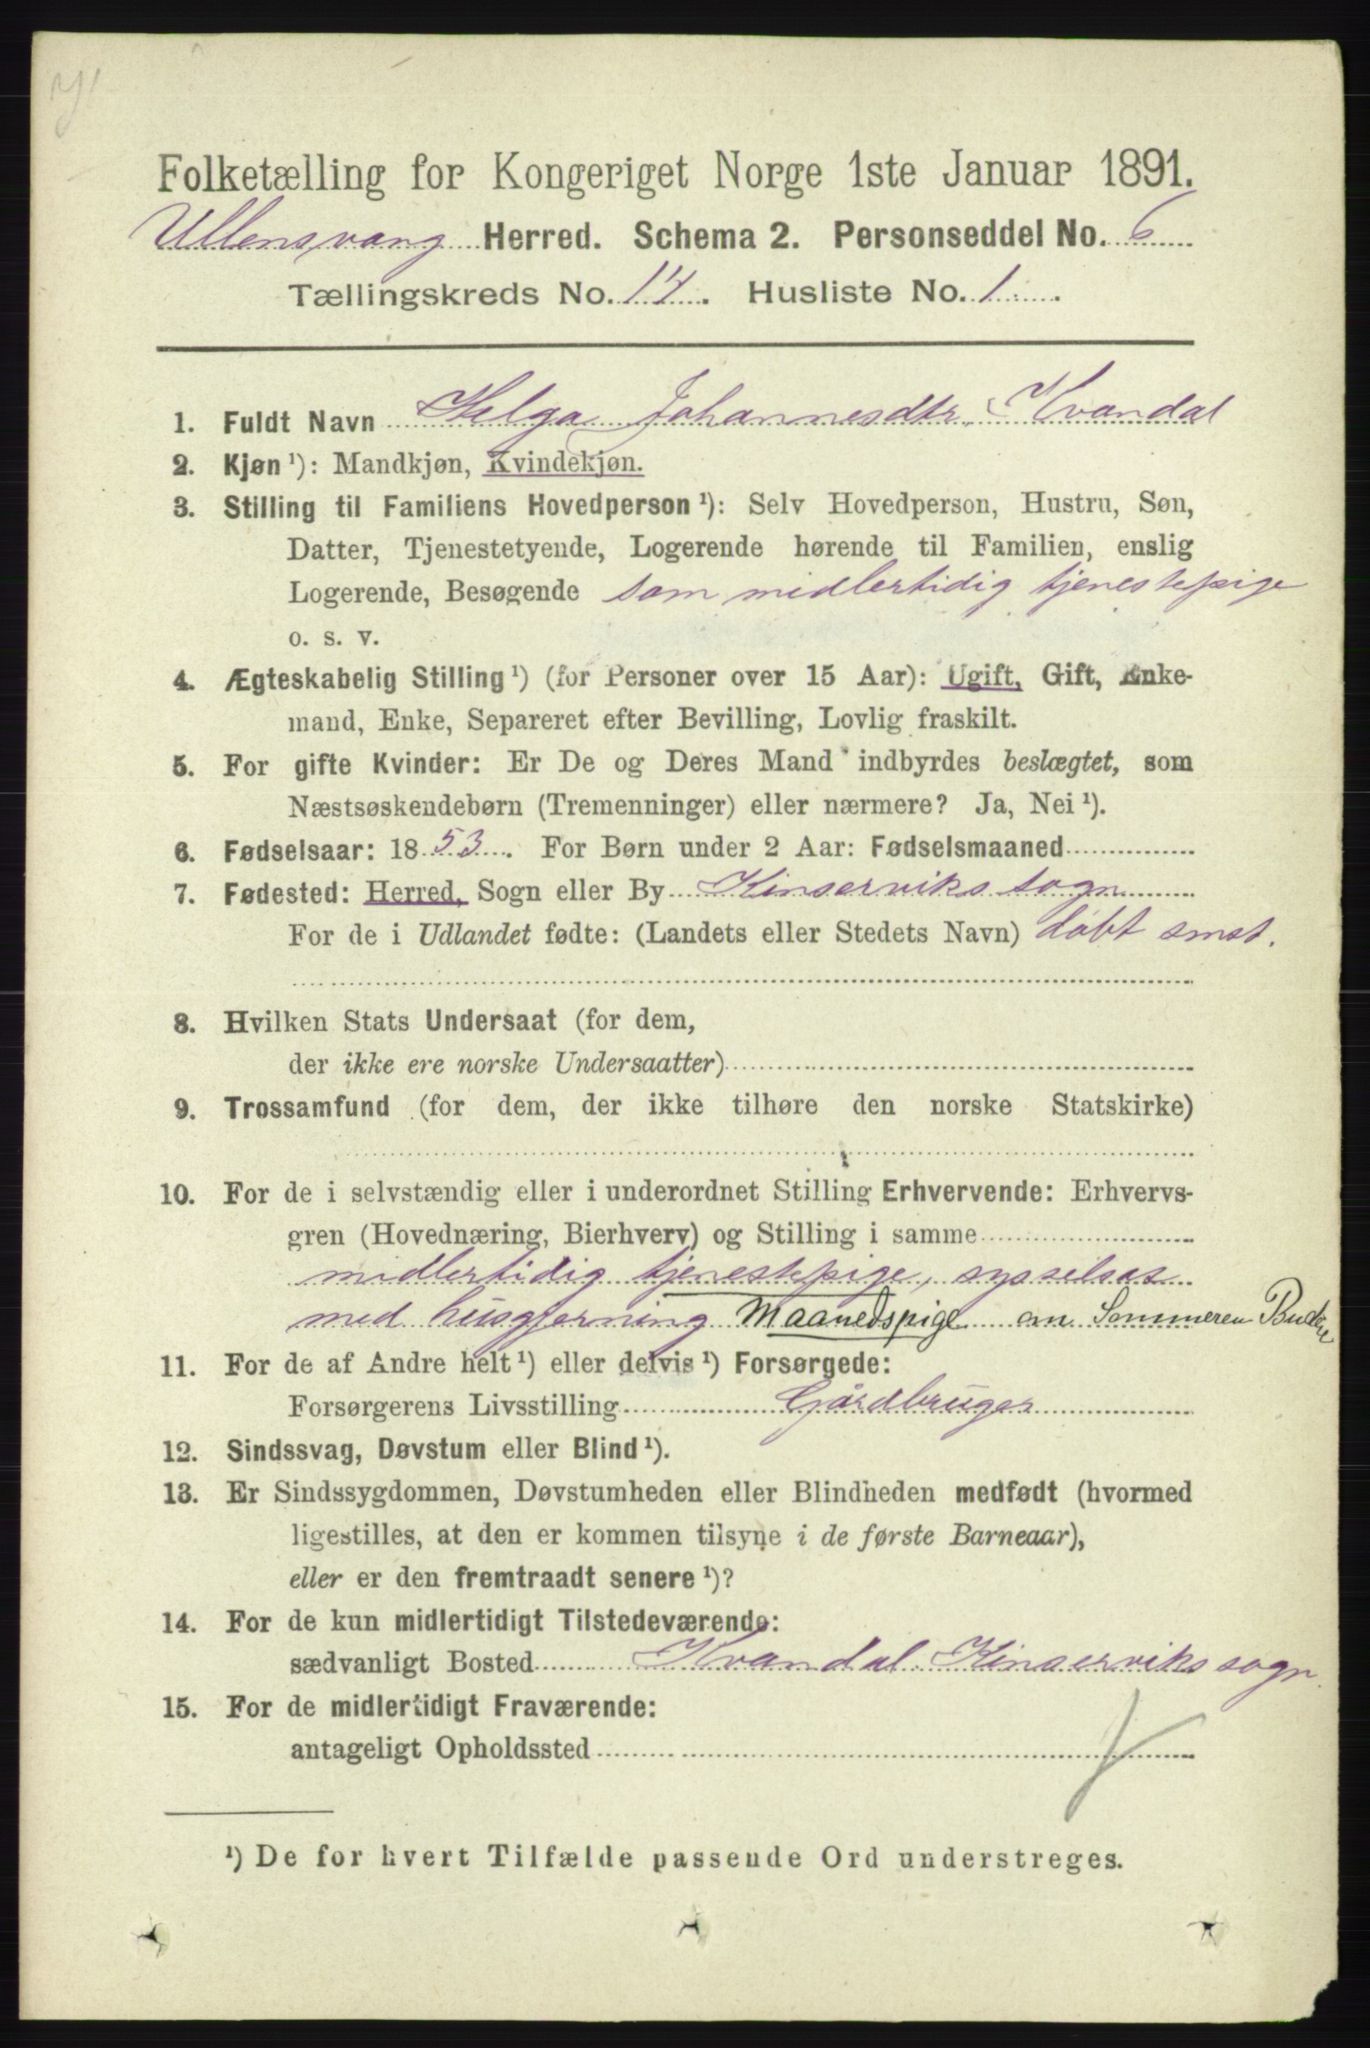 Folketælling for Kongeriget Norge 1ste Januar 1891.
Ullensvang Herred. Schema 2. Personseddel No. 6
Tællingskreds No. 14. Husliste No. 1.
1. Fuldt Navn Helga Johannesdtr. Kvandal
2. Kjøn ¹): Mandkjøn, Kvindekjøn.
3. Stilling til Familiens Hovedperson ¹): Selv Hovedperson, Hustru, Søn,
Datter, Tjenestetyende, Logerende hørende til Familien, enslig
Logerende, Besøgende som midlertidig tjenestepige
o. s. v.
4. Ægteskabelig Stilling ¹) (for Personer over 15 Aar): Ugift, Gift, Enke-
mand, Enke, Separeret efter Bevilling, Lovlig fraskilt.
5. For gifte Kvinder: Er De og Deres Mand indbyrdes beslægtet, som
Næstsøskendebørn (Tremenninger) eller nærmere? Ja, Nei ¹).
6. Fødselsaar: 1853. For Børn under 2 Aar: Fødselsmaaned
7. Fødested: Herred, Sogn eller By Kinserviks sogn
For de i Udlandet fødte: (Landets eller Stedets Navn) døbt smst.
8. Hvilken Stats Undersaat (for dem,
der ikke ere norske Undersaatter)
9. Trossamfund (for dem, der ikke tilhøre den norske Statskirke)
10. For de i selvstændig eller i underordnet Stilling Erhvervende: Erhvervs-
gren (Hovednæring, Bierhverv) og Stilling i samme
midlertidig tjenestepige, sysselsat
med husgjerning Maanedspige om Sommeren Budeie
11. For de af Andre helt ¹) eller delvis ¹) Forsørgede:
Forsørgerens Livsstilling Gårdbruger
12. Sindssvag, Døvstum eller Blind ¹).
13. Er Sindssygdommen, Døvstumheden eller Blindheden medfødt (hvormed
ligestilles, at den er kommen tilsyne i de første Barneaar),
eller er den fremtraadt senere ¹)?
14. For de kun midlertidigt Tilstedeværende:
sædvanligt Bosted Kvandal Kinserviks sogn.
15. For de midlertidigt Fraværende:
antageligt Opholdssted
¹) De for hvert Tilfælde passende Ord understreges.